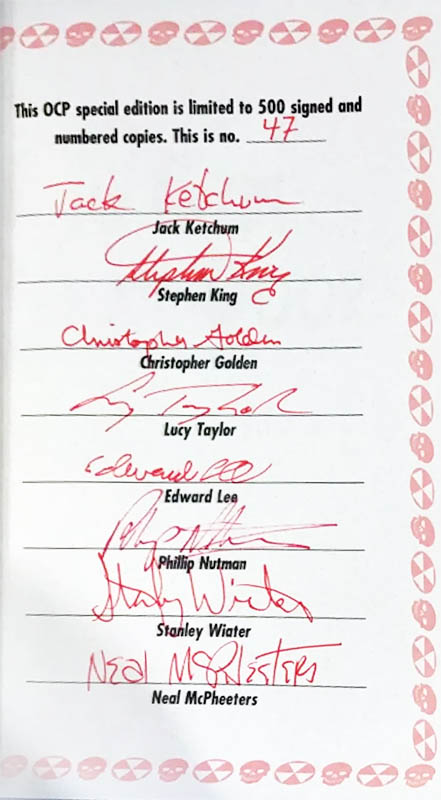 This OCP special edition is limited to 500 signed and
numbered copies. This is no. 47
Jack Ketchum
Jack Ketchum
Stephen King
Stephen King
Christopher Golden
Christopher Golden
Lucy Taylor
Lucy Taylor
Edward Lee
Edward Lee
Philip Nutman
Phillip Nutman
Stanley Wiater
Stanley Wiater
Neal McPheeters
Neal McPheeters